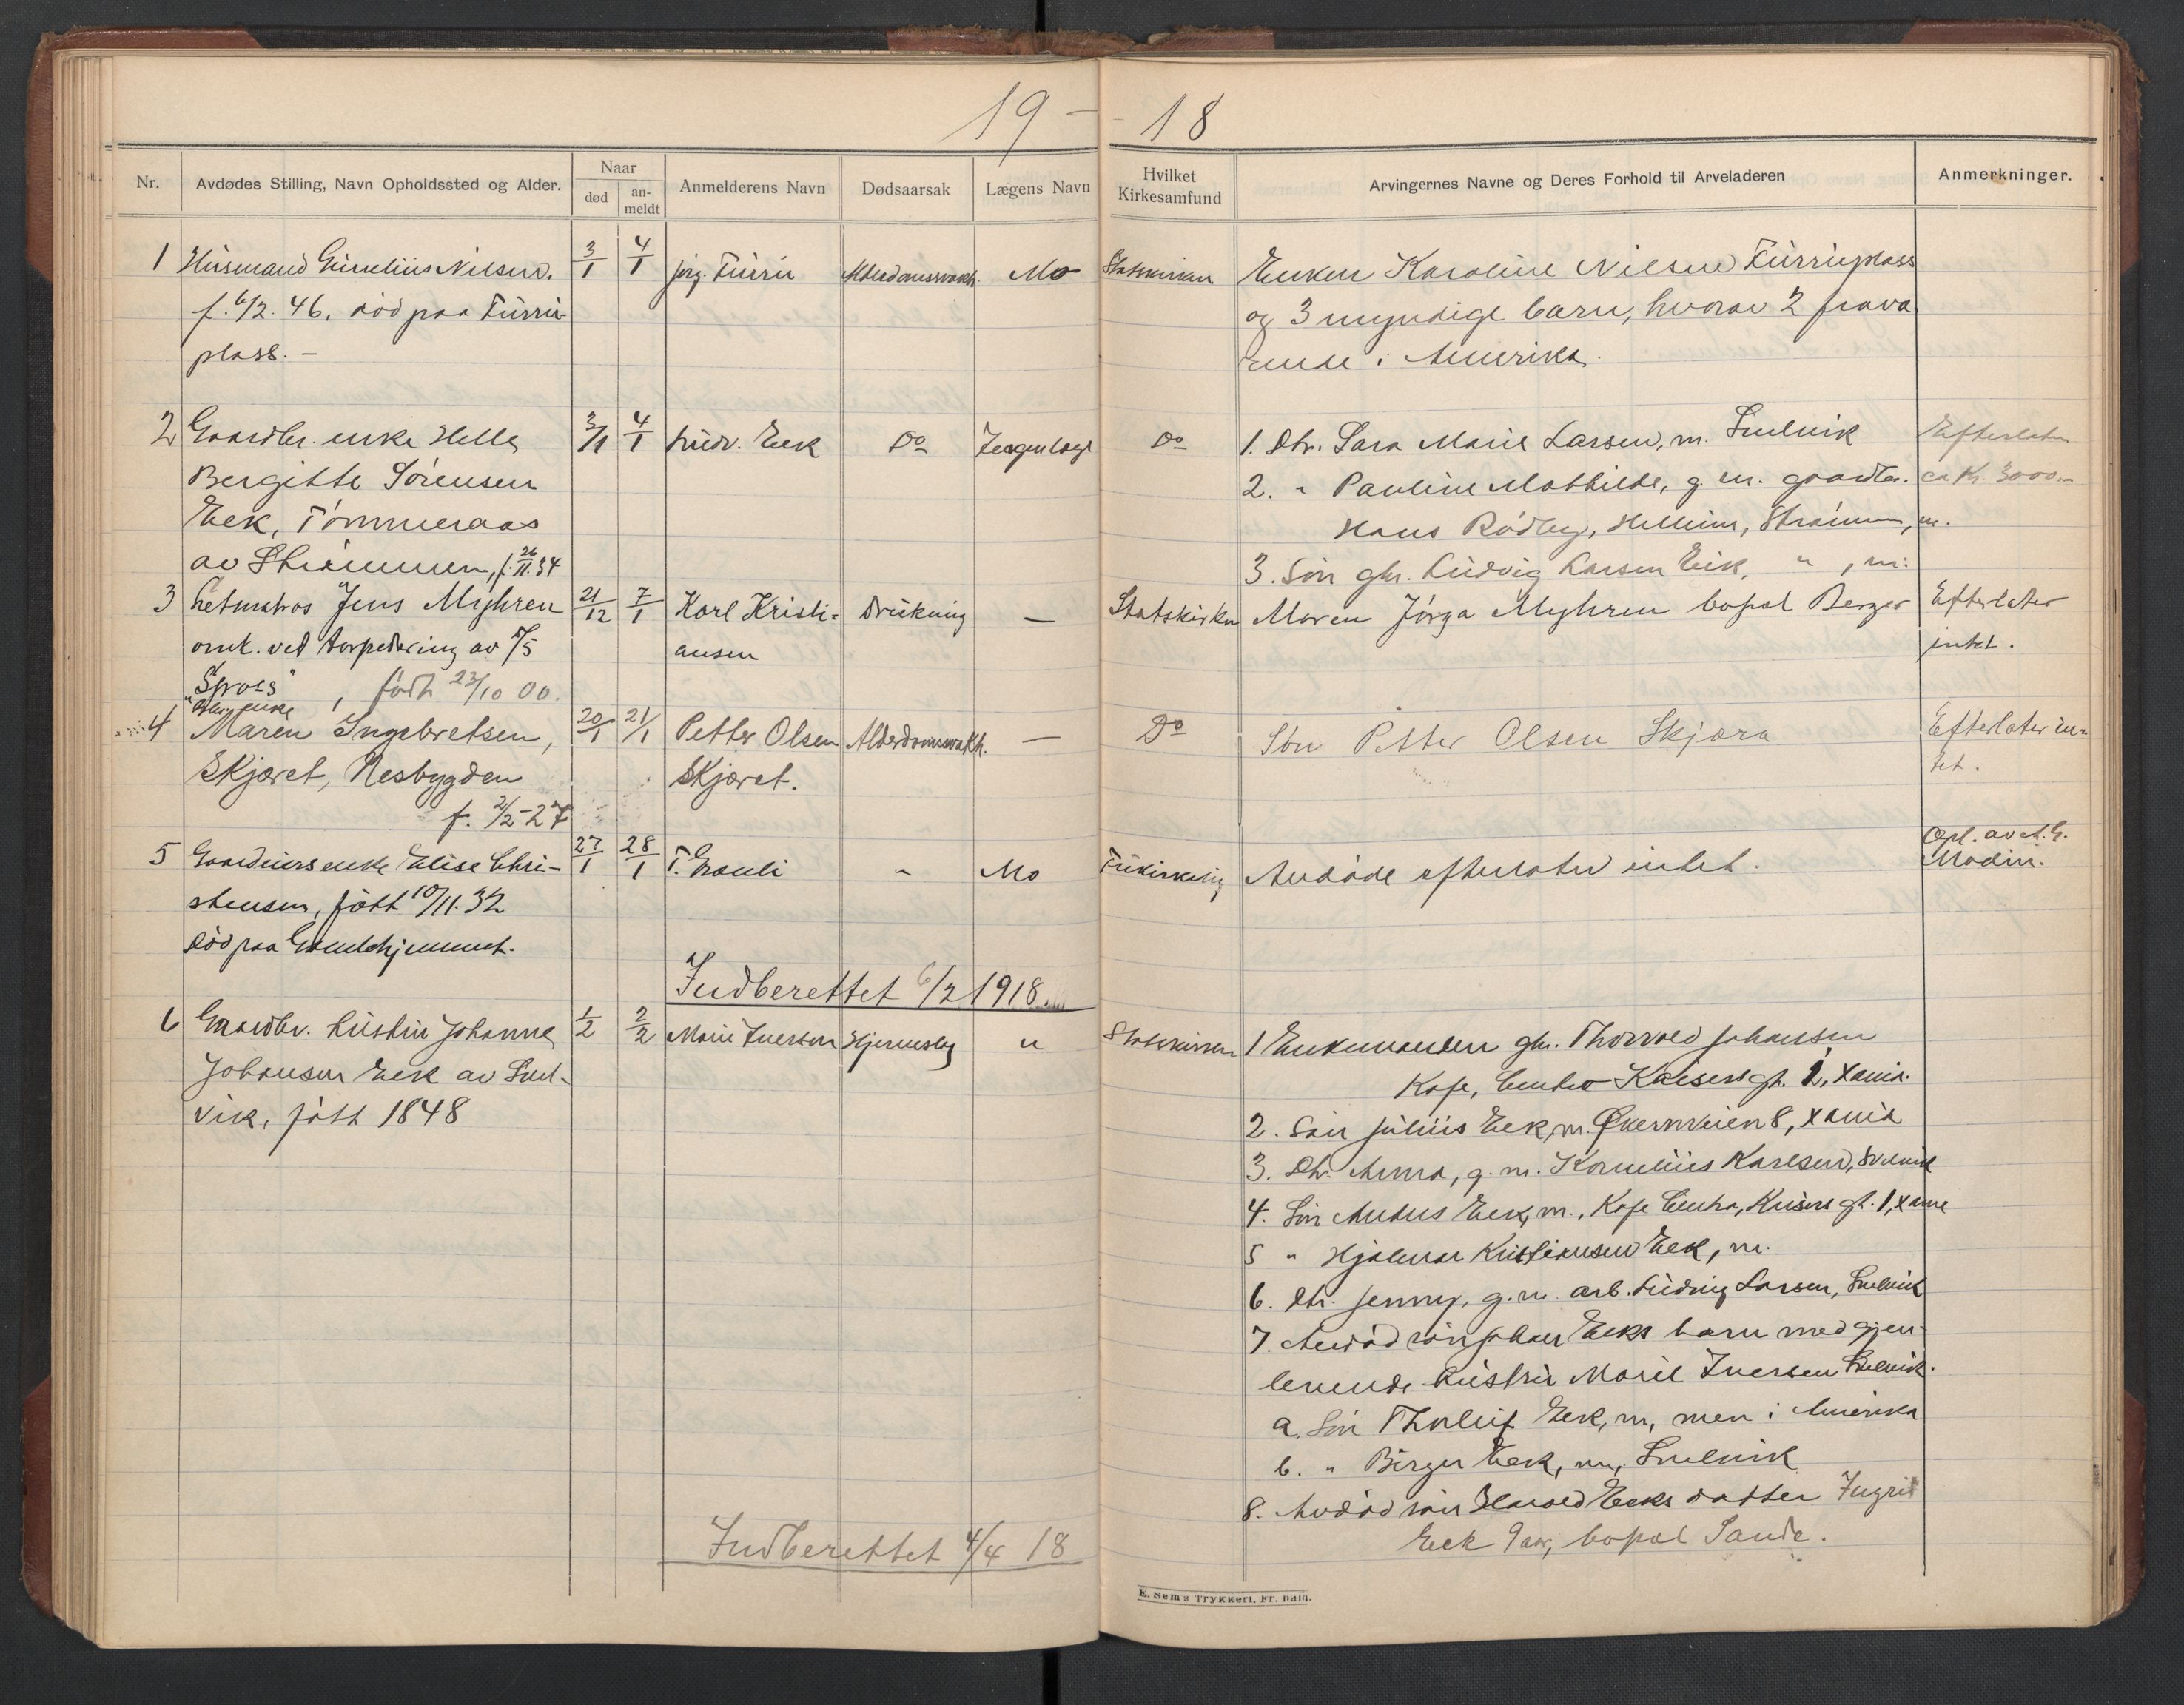 19 - 18
Nr.
Avdødes Stilling, Navn Opholdssted og Alder.
Naar
død
an-
meldt
Anmelderens Navn
Dødsaarsak
Lægens Navn
Hvilket
Kirkesamfund
Arvingernes Navne og Deres Forhold til Arveladeren
Anmerkninger.
1 Husmand Nilsen. 3/1 4/1 Jørg. Furru Alderdomssvakh. Mo Statskirken Enken Karoline Nilsen Furruplass
f. 6/2. 46, død paa Furru- og 3 myndige barn, hvorav 2 fravæ
plass. - rende i Amerika.
2 Gaardbr. enke Helle 3/1 4/1 Ludv. Eek Do Do 1. Dtr. Sara Marie Larsen, m. Svelvik Efterlater
Bergitte Sørensen 2. " Pauline Mathilde, g. m. gaardbr. ca Kr 3000.-
Eek, Tømmeraas Hans Rødby, Hellum, Strømm, m.
av Strømmen, f. 26/11.34 3. Søn gbr. Ludvig Larsen Eik, " , m.
3 Letmatros Jens Myhren 21/12 7/1 Karl Kristi- Drukning — Statskirken Maren Jørga Myhren bopæl Berger Efterlater
omk. ved torpedering av D/S ansen intet.
"Spross" , født 23/10 00.
enke
4 Maren Ingebretsen, 20/1 21/1 Petter Olsen Alderdomssvakh. — Do Søn Petter Olsen Skjæra Efterlater in-
Skjæret, Nesbygden Skjæret. tet.
f. 2/2-27
5 Gaardeiersenke Elise Chri- 27/1 28/1 T. Grauli " Mo Frikirkelig Avdøde efterlater intet. Opl. av A. G.
stensen, født 10/11.32 Modin.
død paa Gamlehjemmet.
Indberettet 6/2 1918.
6 Gaardbr. hustru Johanne 1/2 2/2 Marie Iversen Hjerneslag " Statskirken 1 Enkemanden gbr. Thorvald Johansen
Johansen Eek av Svel- Kafe, Centro Keisersgt. 1, Xania.
vik, født 1848 2. Søn Julius Eek, m. Økernveien 8, Xania
3. Dtr. Anna, g. m. Kornelius Karlsen, Svelvik
4. Søn Eek, m., Kafe Centra, Keisers gt. 1, Xania
5 " Hjalmar Kristiansen Eek, m.
6. Dtr. Jenny, g. m. arb. Ludvig Larsen, Svelvik
7. Avdød søn Johan Eeks barn med gjen-
levende hustru Marie Iversen Svelvik.
a. Søn Thorleif Eek, m, men i Amerika
b. " Birger Eek, m, Svelvik
8. Avdød søn Harald Eeks datter Ingrid
Eek 9 aar, bopæl Sande.
Indberettet 4/4 18
E. Sem's Trykkeri, Fr.hald.